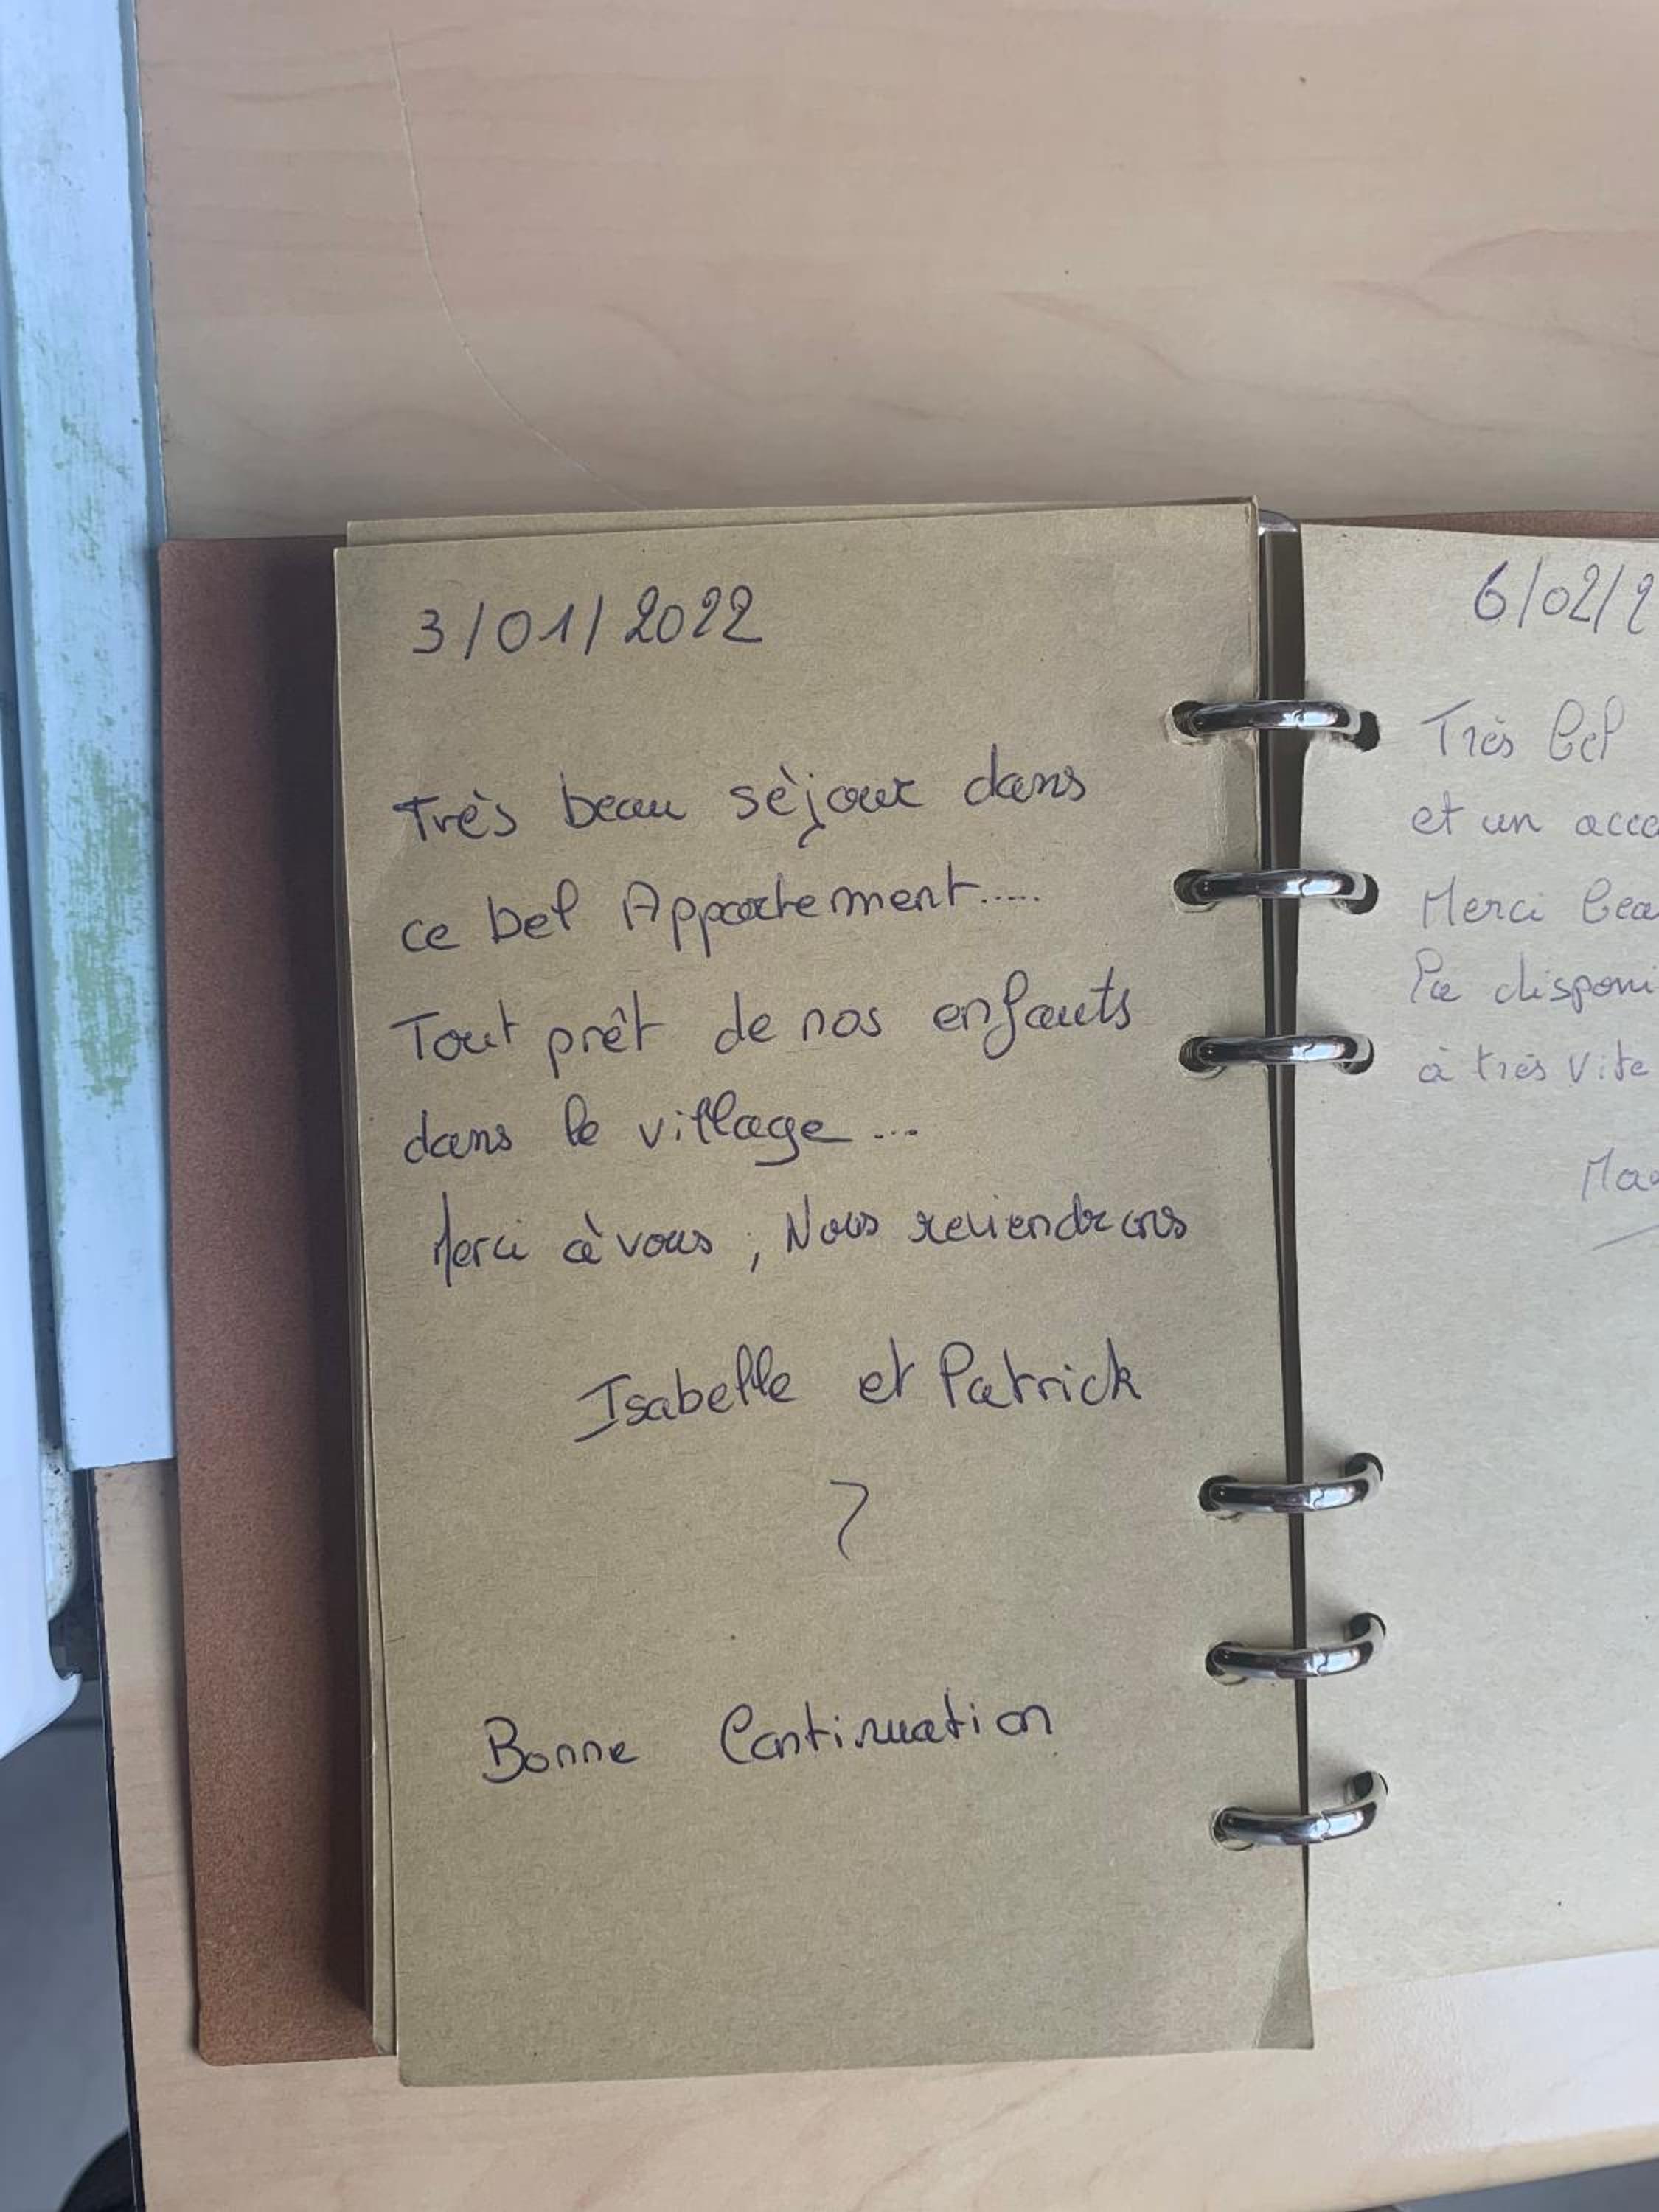 3/01/2022
Très beau sèjour dans
ce bel Appartement.....
Tout prêt de nos enfants
dans le village ...
Merci à vous, Nous reviendrons
Isabelle et Patrick
Bonne Continuation
6/02/2
Très bel
et un acc
Merci bea
la disponi
à très vite
Ma